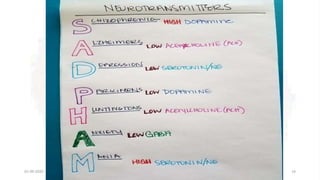 NEUROTRANSMITTERS
SCHIZOPHRENIA HIGH DOPAMINE
ALZHEIMERS LOW ACETYLCHOLINE (ACh)
DEPRESSION LOW SEROTONIN/NE
PARKINSONS LOW DOPAMINE
HUNTINGTONS LOW ACETYLCHOLINE (ACH)
ANXIETY LOW GABA
MANIA HIGH SEROTONIN/NE
14